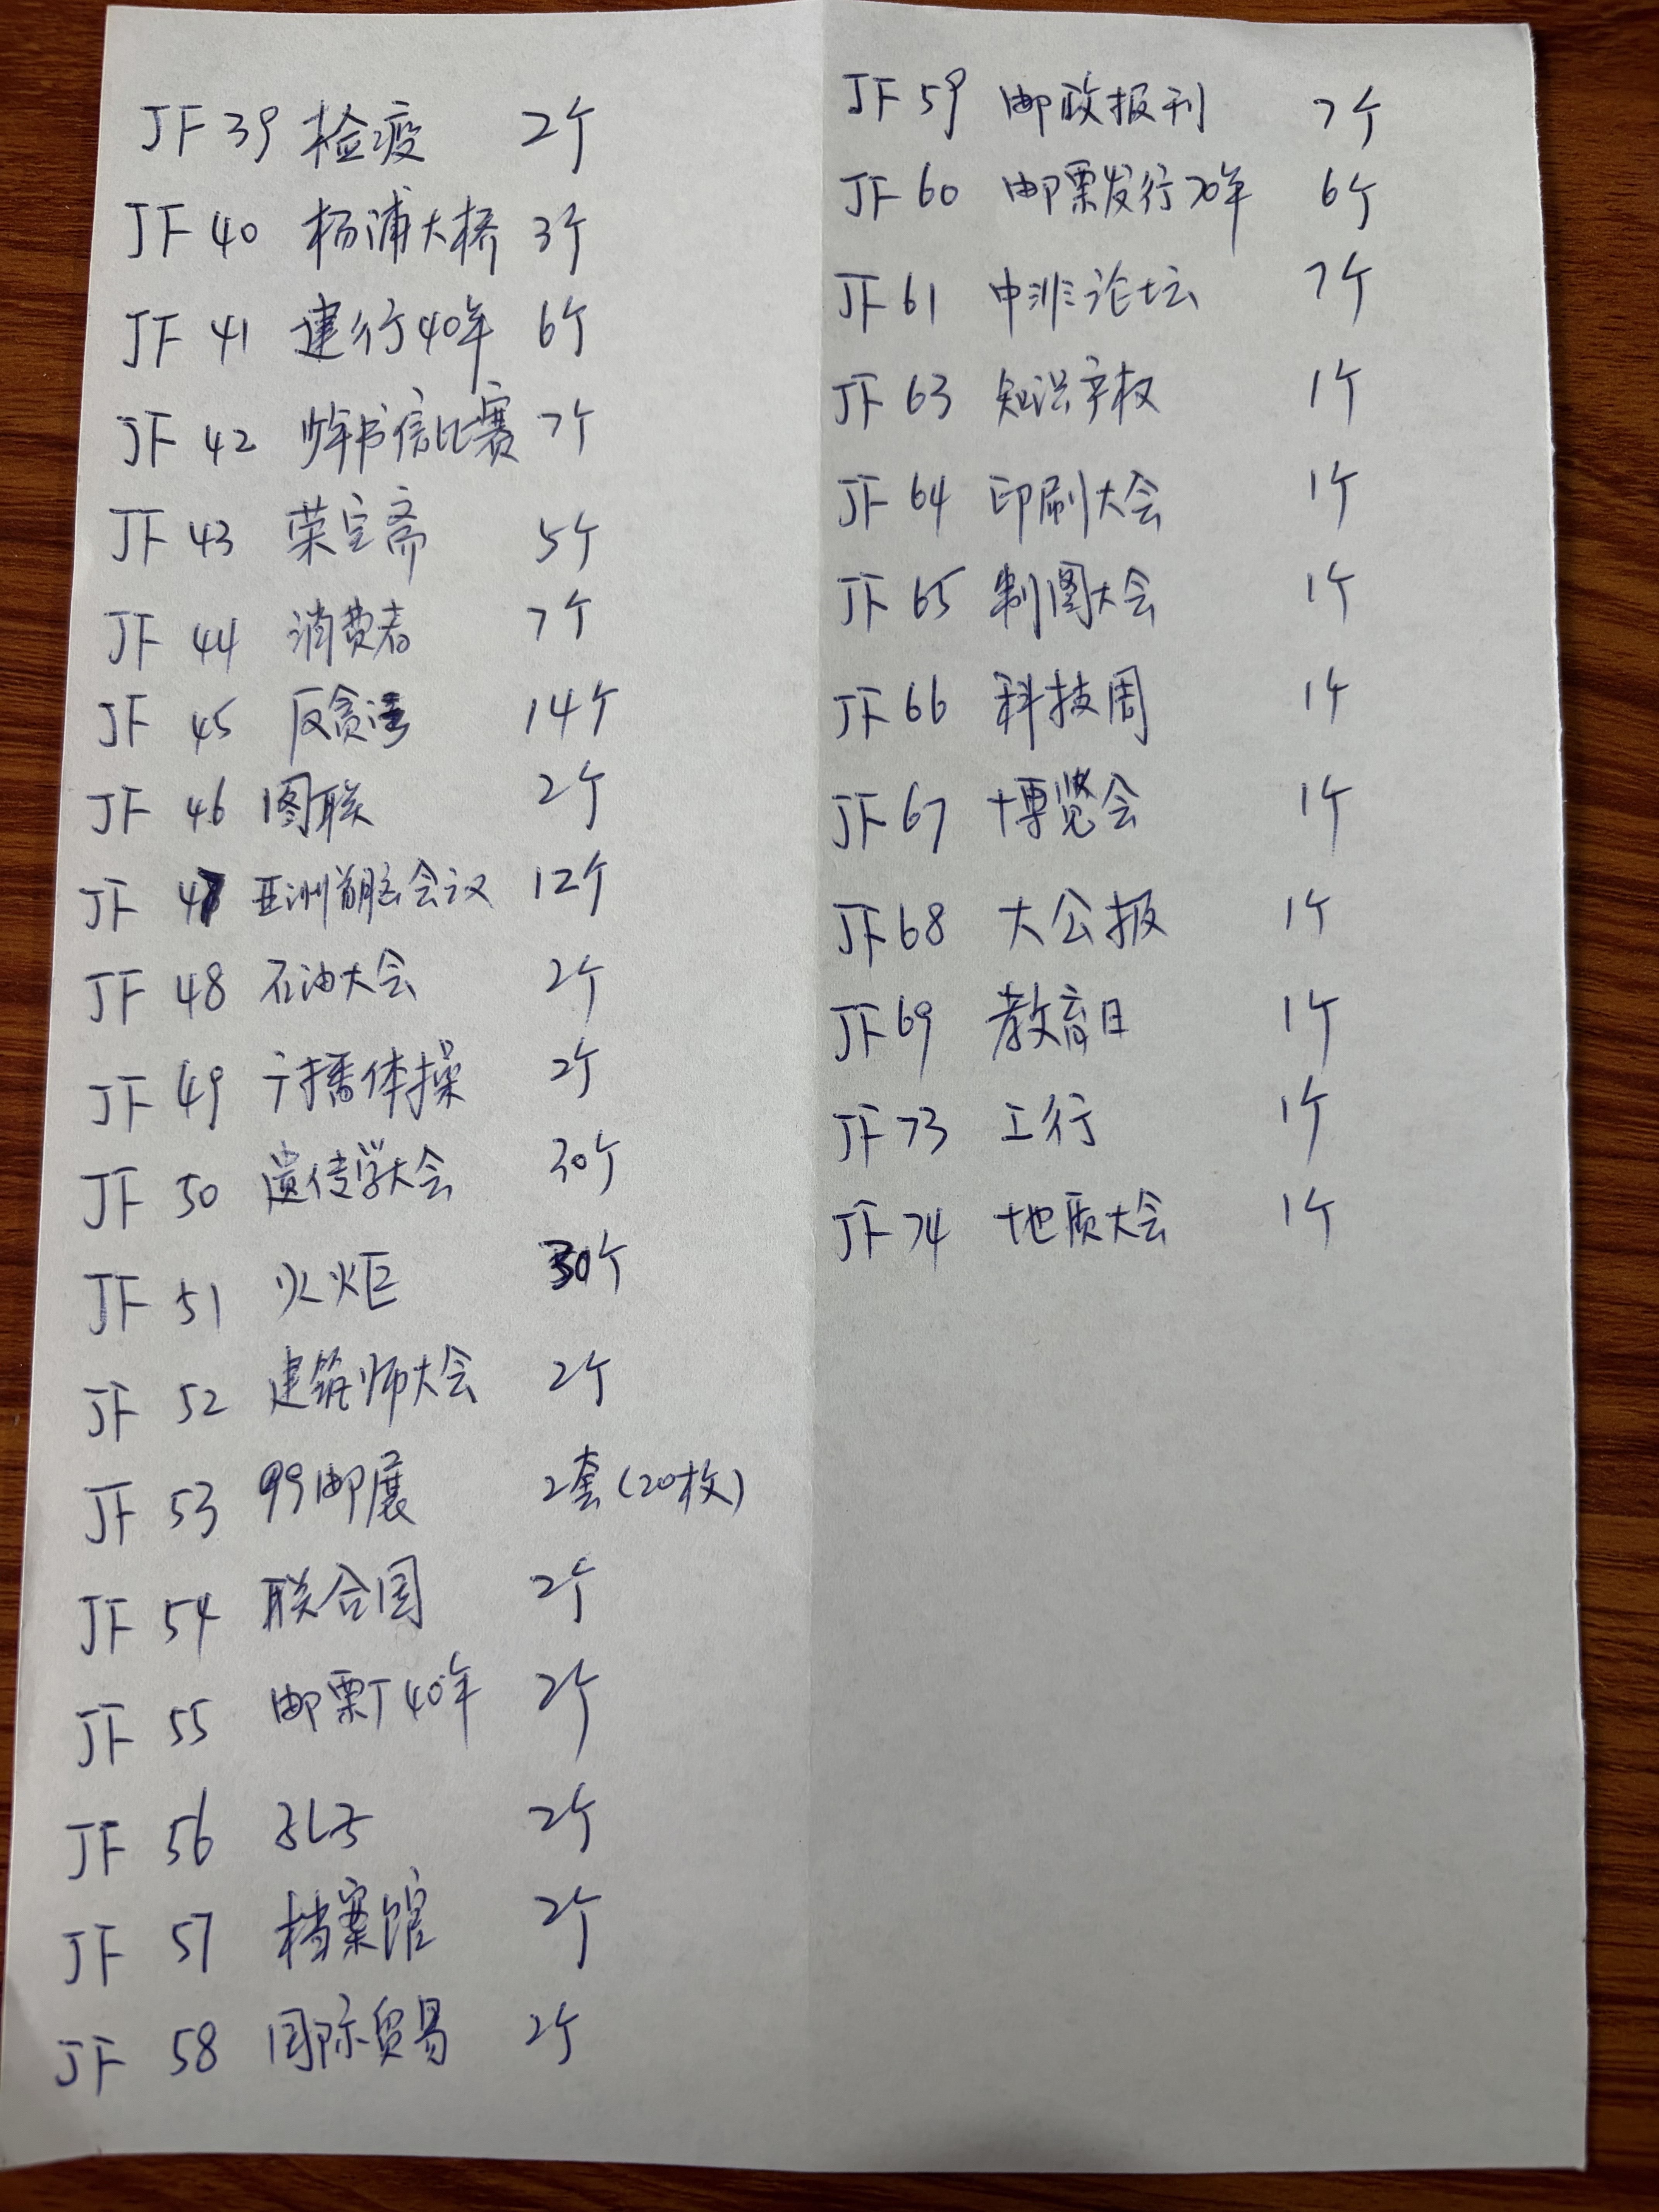 JF 39 检疫 2个
JF 40 杨浦大桥 3个
JF 41 建行40年 6个
JF 42 少年书信比赛 7个
JF 43 荣宝斋 5个
JF 44 消费者 7个
JF 45 反贪 14个
JF 46 图联 2个
JF 47 亚洲首脑会议 12个
JF 48 石油大会 2个
JF 49 广播体操 2个
JF 50 遗传学大会 30个
JF 51 火炬 30个
JF 52 建筑师大会 2个
JF 53 99邮展 2套(20枚)
JF 54 联合国 2个
JF 55 邮票厂40年 2个
JF 56 孔子 2个
JF 57 档案馆 2个
JF 58 国际贸易 2个
JF 59 邮政报刊 7个
JF 60 邮票发行70年 6个
JF 61 中非论坛 7个
JF 63 知识产权 1个
JF 64 印刷大会 1个
JF 65 制图大会 1个
JF 66 科技周 1个
JF 67 博览会 1个
JF 68 大公报 1个
JF 69 教育日 1个
JF 73 工行 1个
JF 74 地质大会 1个